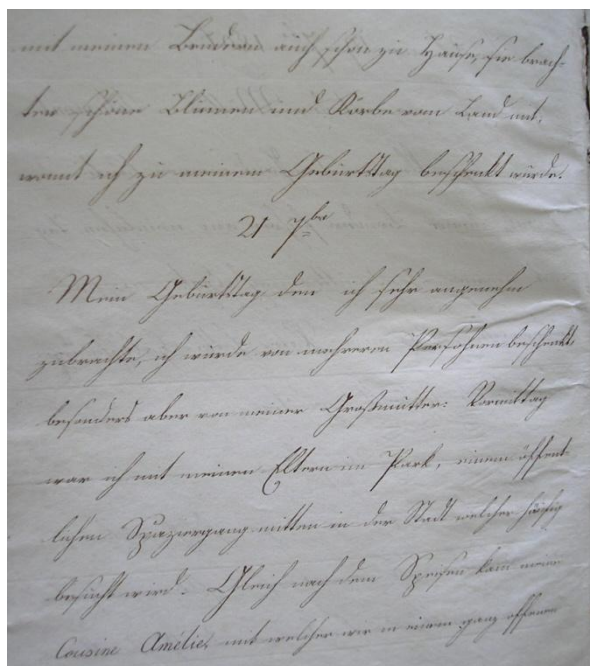 mit meinen Brüdern auch schon zu Hause, sie brach-
ten schöne Blumen und Körbe vom Land mit,
womit ich zu meinem Geburtstag beschenkt wurde.
21 7bre
Mein Geburtstag den ich sehr angenehm
zubrachte, ich wurde von mehreren Persohnen beschenkt,
besonders aber von meiner Großmutter: Vormittag
war ich mit meinen Eltern im Park, einem öffent-
lichen Spaziergang mitten in der Stadt welcher häufig
besucht wird. Gleich nach dem Speisen kam meine
Cousine Amélie, mit welcher wir in einem ganz offenen